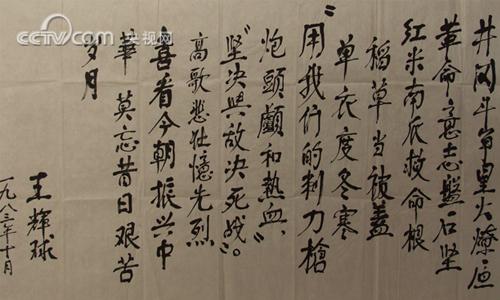 CCTV.com 央视网
井冈斗争星火燎原
革命意志盤石坚
红米南瓜救命根
稻草当被盖
单衣度冬寒
“用我们的刺刀槍
炮頭颅和热血、
坚决與敌决死战”。
高歌悲壮憶先烈
喜看今朝振兴中
華 莫忘昔日艰苦
岁月
王輝球
一九八三年十月